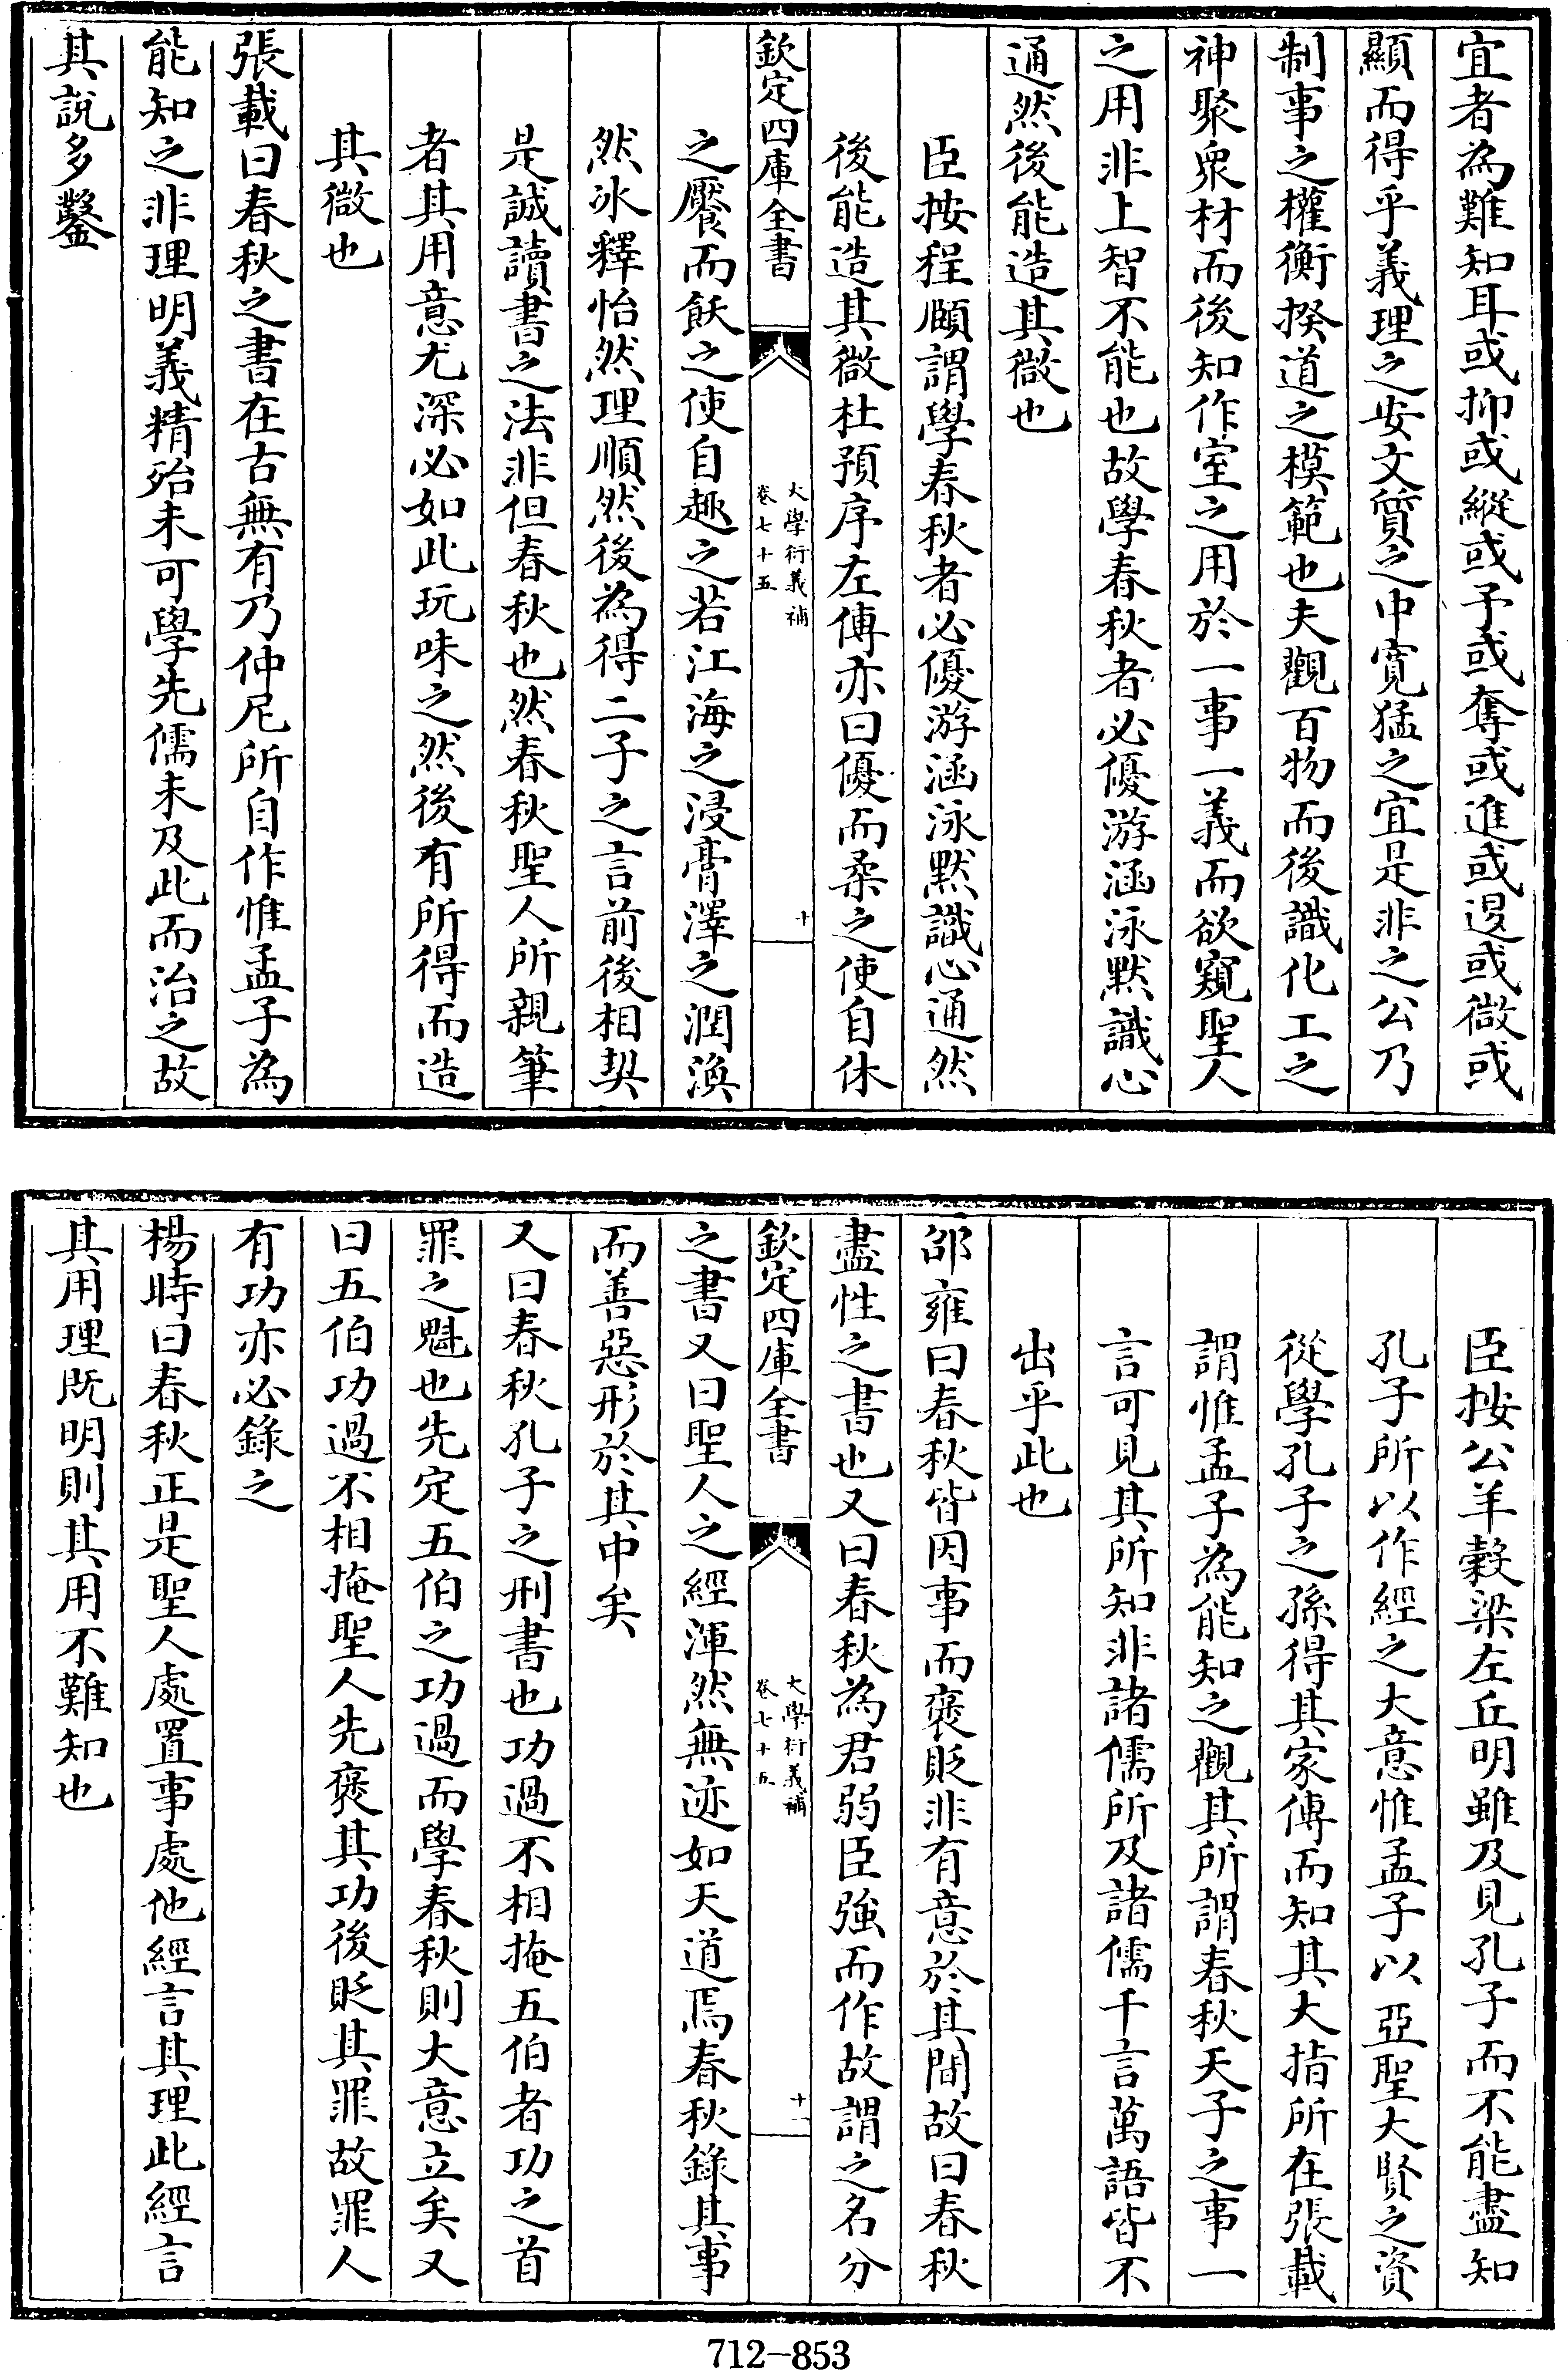 宜者為難知耳或抑或縱或予或奪或進或退或微或
顯而得乎義理之安文質之中寬猛之宜是非之公乃
制事之權衡揆道之模範也夫觀百物而後識化工之
神聚衆材而後知作室之用於一事一義而欲窺聖人
之用非上智不能也故學春秋者必優游涵泳默識心
通然後能造其微也
臣按程頤謂學春秋者必優游涵泳默識心通然
後能造其微杜預序左傳亦曰優而柔之使自休
欽定四庫全書
大學衍義補
卷七十五
十
之饜而飫之使自趣之若江海之浸膏澤之潤渙
然冰釋怡然理順然後為得二子之言前後相契
是誠讀書之法非但春秋也然春秋聖人所親筆
者其用意尤深必如此玩味之然後有所得而造
其微也
張載曰春秋之書在古無有乃仲尼所自作惟孟子為
能知之非理明義精殆未可學先儒未及此而治之故
其說多鑿
臣按公羊穀梁左丘明雖及見孔子而不能盡知
孔子所以作經之大意惟孟子以亞聖大賢之資
從學孔子之孫得其家傳而知其大指所在張載
謂惟孟子為能知之觀其所謂春秋天子之事一
言可見其所知非諸儒所及諸儒千言萬語皆不
出乎此也
邵雍曰春秋皆因事而褒貶非有意於其間故曰春秋
盡性之書也又曰春秋為君弱臣強而作故謂之名分
欽定四庫全書
大學衍義補
卷七十五
十一
之書又曰聖人之經渾然無迹如天道焉春秋錄其事
而善惡形於其中矣
又曰春秋孔子之刑書也功過不相掩五伯者功之首
罪之魁也先定五伯之功過而學春秋則大意立矣又
曰五伯功過不相掩聖人先褒其功後貶其罪故罪人
有功亦必錄之
楊時曰春秋正是聖人處置事處他經言其理此經言
其用理既明則其用不難知也
712-853